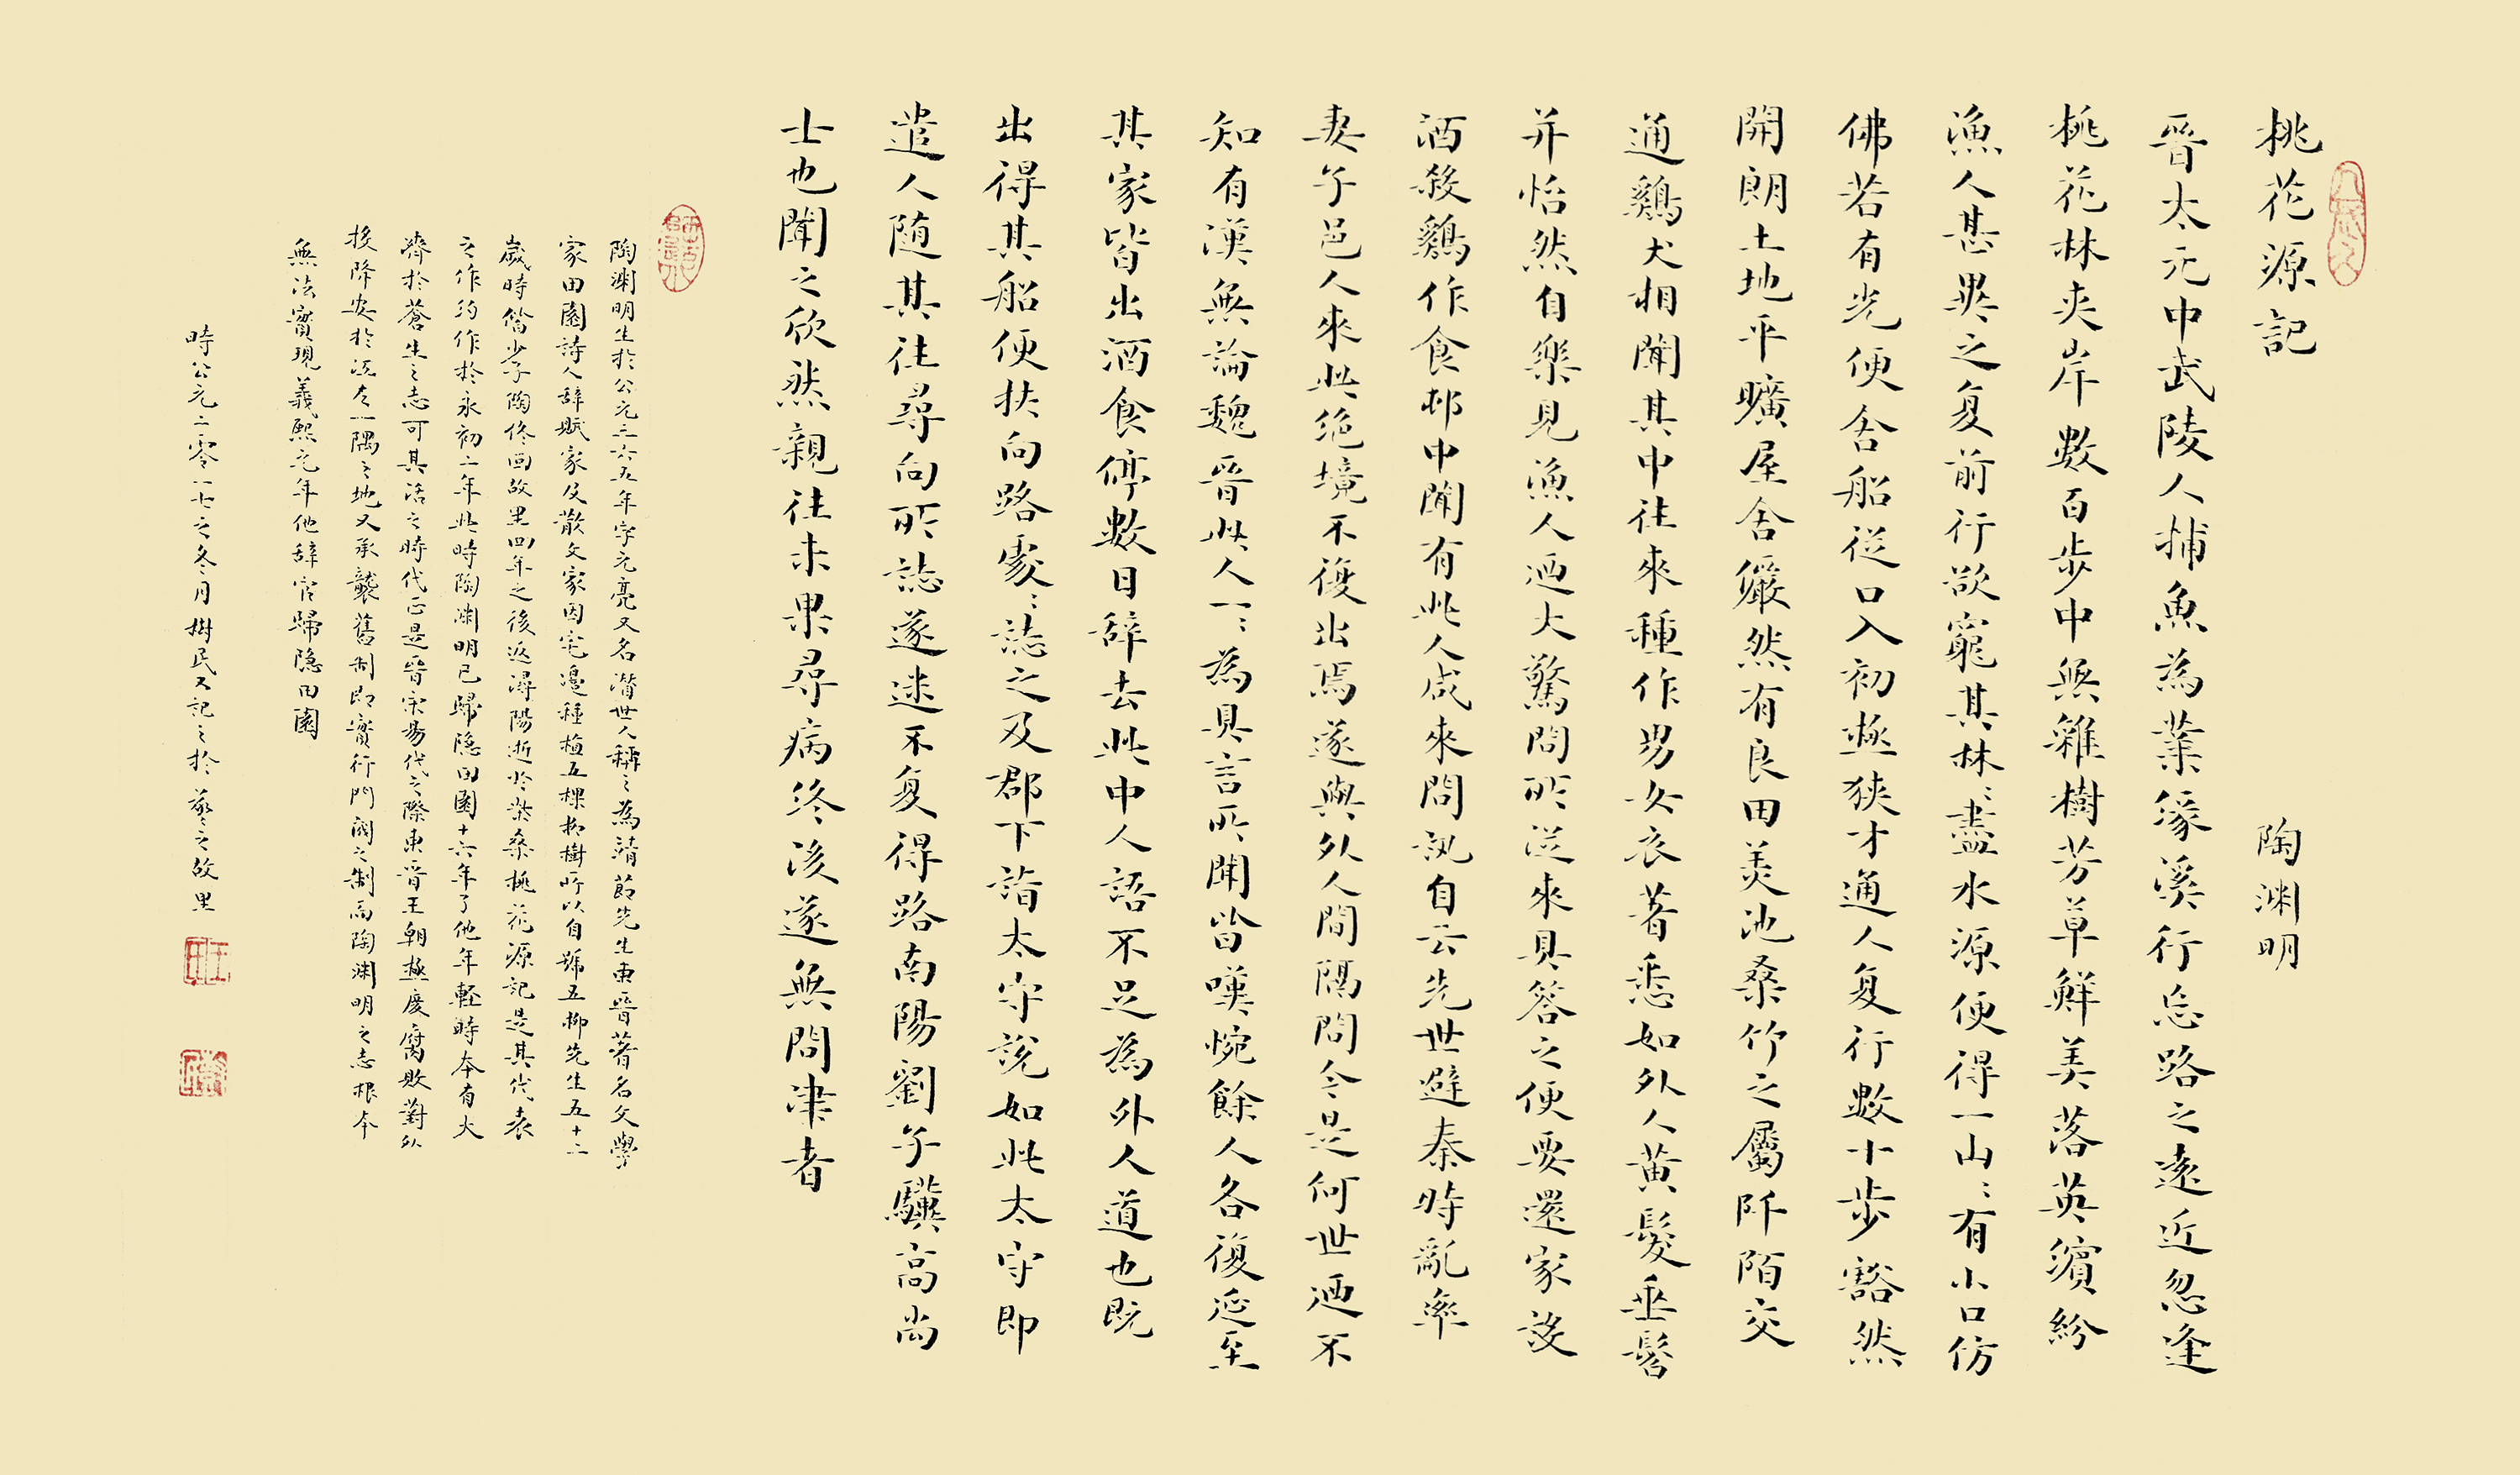 桃花源記 陶渊明
晉太元中武陵人捕魚為業缘溪行忘路之遠近忽逢
桃花林夹岸數百步中無雜樹芳草鲜美落英濱紛
漁人甚異之复前行欲窮其林〻盡水源便得一山〻有小口仿
佛若有光便舍船從口入初極狹才通人复行數十步豁然
開朗土地平曠屋舍儼然有良田美池桑竹之屬阡陌交
通鷄犬相聞其中往來種作男女衣著悉如外人黃髮垂髫
并怡然自樂見漁人迺大驚問所從來具答之便要還家設
酒殺鷄作食邨中聞有此人咸來問訊自云先世避秦時亂率
妻子邑人來此絕境不復出焉遂與外人間隔問今是何世迺不
知有漢無論魏晉此人一〻為具言所聞皆嘆惋餘人各復延至
其家皆出酒食停數日辭去此中人語不足為外人道也既
出得其船便扶向路處〻誌之及郡下詣太守說如此太守即
遣人随其往尋向所誌遂迷不复得路南陽劉子驥高尚
士也聞之欣然親往未果尋病终後遂無問津者
陶渊明生於公元三六五年字元亮又名潜世人稱之為靖節先生東晉著名文學
家田園詩人辞賦家及散文家因宅邊種植五棵柳樹所以自號五柳先生五十二
歲時偕少子陶佟回故里四年之後返潯陽逝於柴桑桃花源記是其代表
之作約作於永初二年此時陶渊明已歸隐田園十六年了他年輕時本有大
濟於蒼生之志可其活之時代正是晉宋易代之際東晉王朝極度腐敗對外
投降安於江左一隅之地又承襲舊制即實行門阀之制而陶渊明之志根本
無法實現義熙元年他辞官歸隐田園
時公元二零一七之冬月樹民又記之於羲之故里